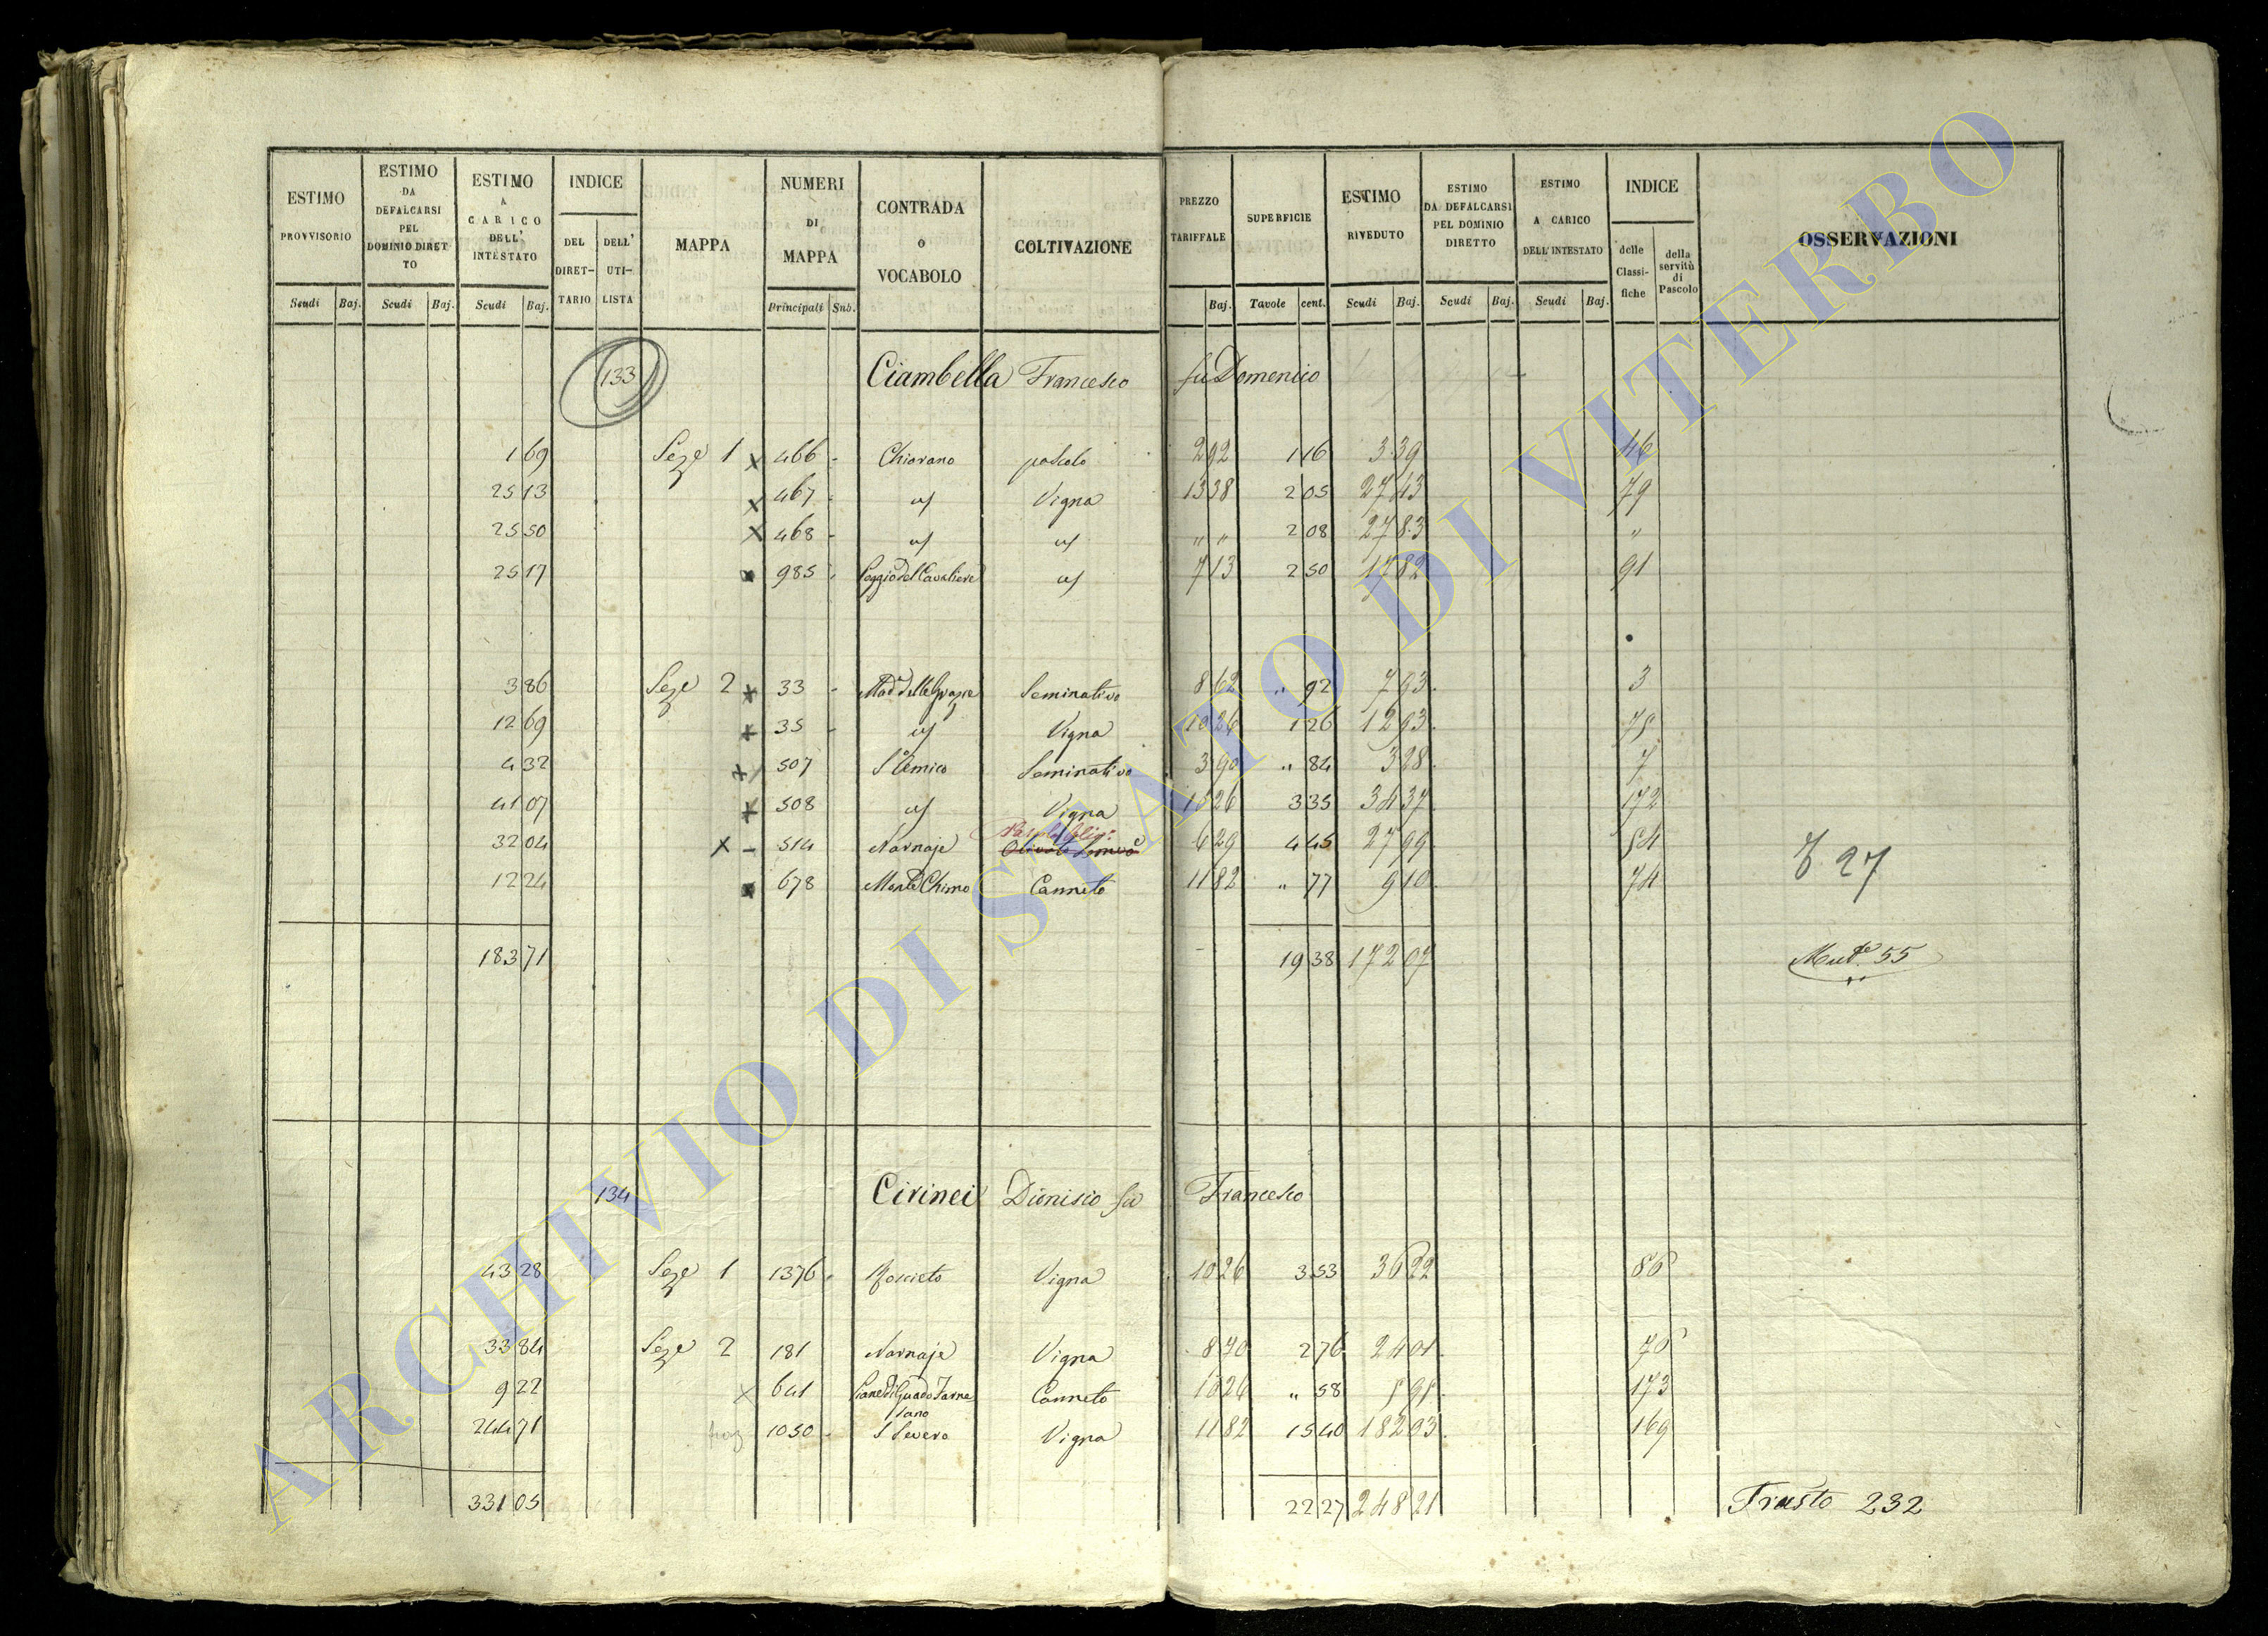 ESTIMO PROVVISORIO | ESTIMO DA DEFALCARSI PEL DOMINIO DIRETTO | ESTIMO A CARICO DELL' INTESTATO | INDICE | MAPPA | NUMERI DI MAPPA | CONTRADA O VOCABOLO | COLTIVAZIONE | PREZZO TARIFFALE | SUPERFICIE | ESTIMO RIVEDUTO | ESTIMO DA DEFALCARSI PEL DOMINIO DIRETTO | ESTIMO A CARICO DELL'INTESTATO | INDICE | OSSERVAZIONI
DEL DIRET-TARIO | DELL' UTI-LISTA | delle Classi-fiche | della servitù di Pascolo
Scudi | Baj. | Scudi | Baj. | Scudi | Baj. | Principali | Sub. | Baj. | Tavole | cent. | Scudi | Baj. | Scudi | Baj. | Scudi | Baj.
133 Ciambella Francesco fu Domenico
1 69 Seze 1 x 466 - Chiorano pascolo 2 92 1 16 3 39 46
25 13 x 467 - id Vigna 13 38 2 05 27 43 79
25 50 x 468 - id id " " 2 08 27 83 "
25 17 985 Poggio del Cavaliere id 7 13 2 50 17 82 91
3 86 Seze 2 x 33 - Mad delle Grazie Seminativo 8 62 " 92 7 93 3
12 69 x 35 - id Vigna 10 26 1 26 12 93
4 32 x 507 Seminativo 3 90 " 84 3 28 7
41 07 x 508 id Vigna 10 26 3 35 34 37 172
32 04 x - 514 Narnaje 6 29 4 45 27 99
12 24 678 Canneto 11 82 " 77 9 10 74
27
183 71 19 38 172 07 55
134 Cirinei Dionisio fu Francesco
43 28 Seze 1 1376 Roscieto Vigna 10 26 3 53 36 22 86
33 84 Seze 2 181 Narnaje Vigna 8 70 2 76 24 01 70
9 22 x 641 Canneto 10 26 " 58 5 95 173
244 71 1050 S Severo Vigna 11 82 15 40 182 03 169
331 05 22 27 248 21 Trasto 232
ARCHIVIO DI STATO DI VITERBO